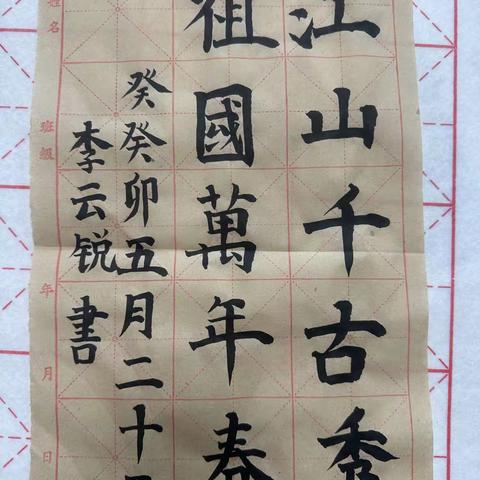 江山千古秀
祖國萬年春
癸癸卯五月二十
李云锐書
姓名
班級
年
月
日